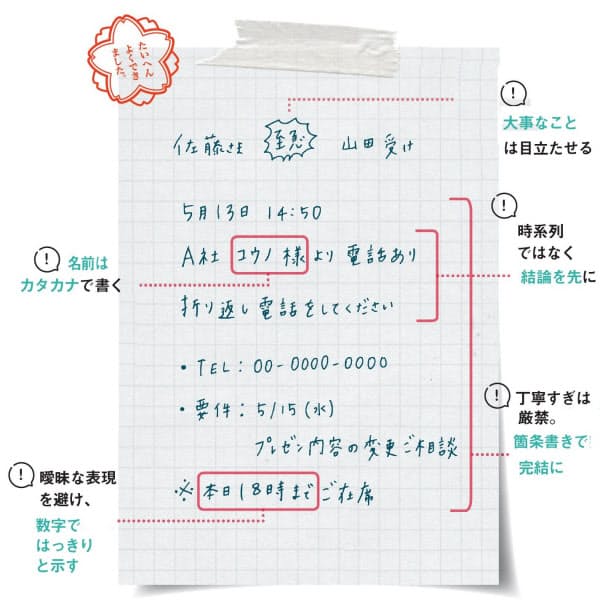 たいへん
よくでき
ました。
大事なこと
は目立たせる
佐藤さま 至急 山田受け
5月13日 14:50
A社 コウノ様より電話あり
折り返し電話をしてください
・TEL:00-0000-0000
・要件:5/15(水)
プレゼン内容の変更ご相談
※本日18時までご在席
時系列
ではなく
結論を先に
名前は
カタカナで書く
丁寧すぎは
厳禁。
箇条書きで
完結に
曖昧な表現
を避け、
数字で
はっきり
と示す